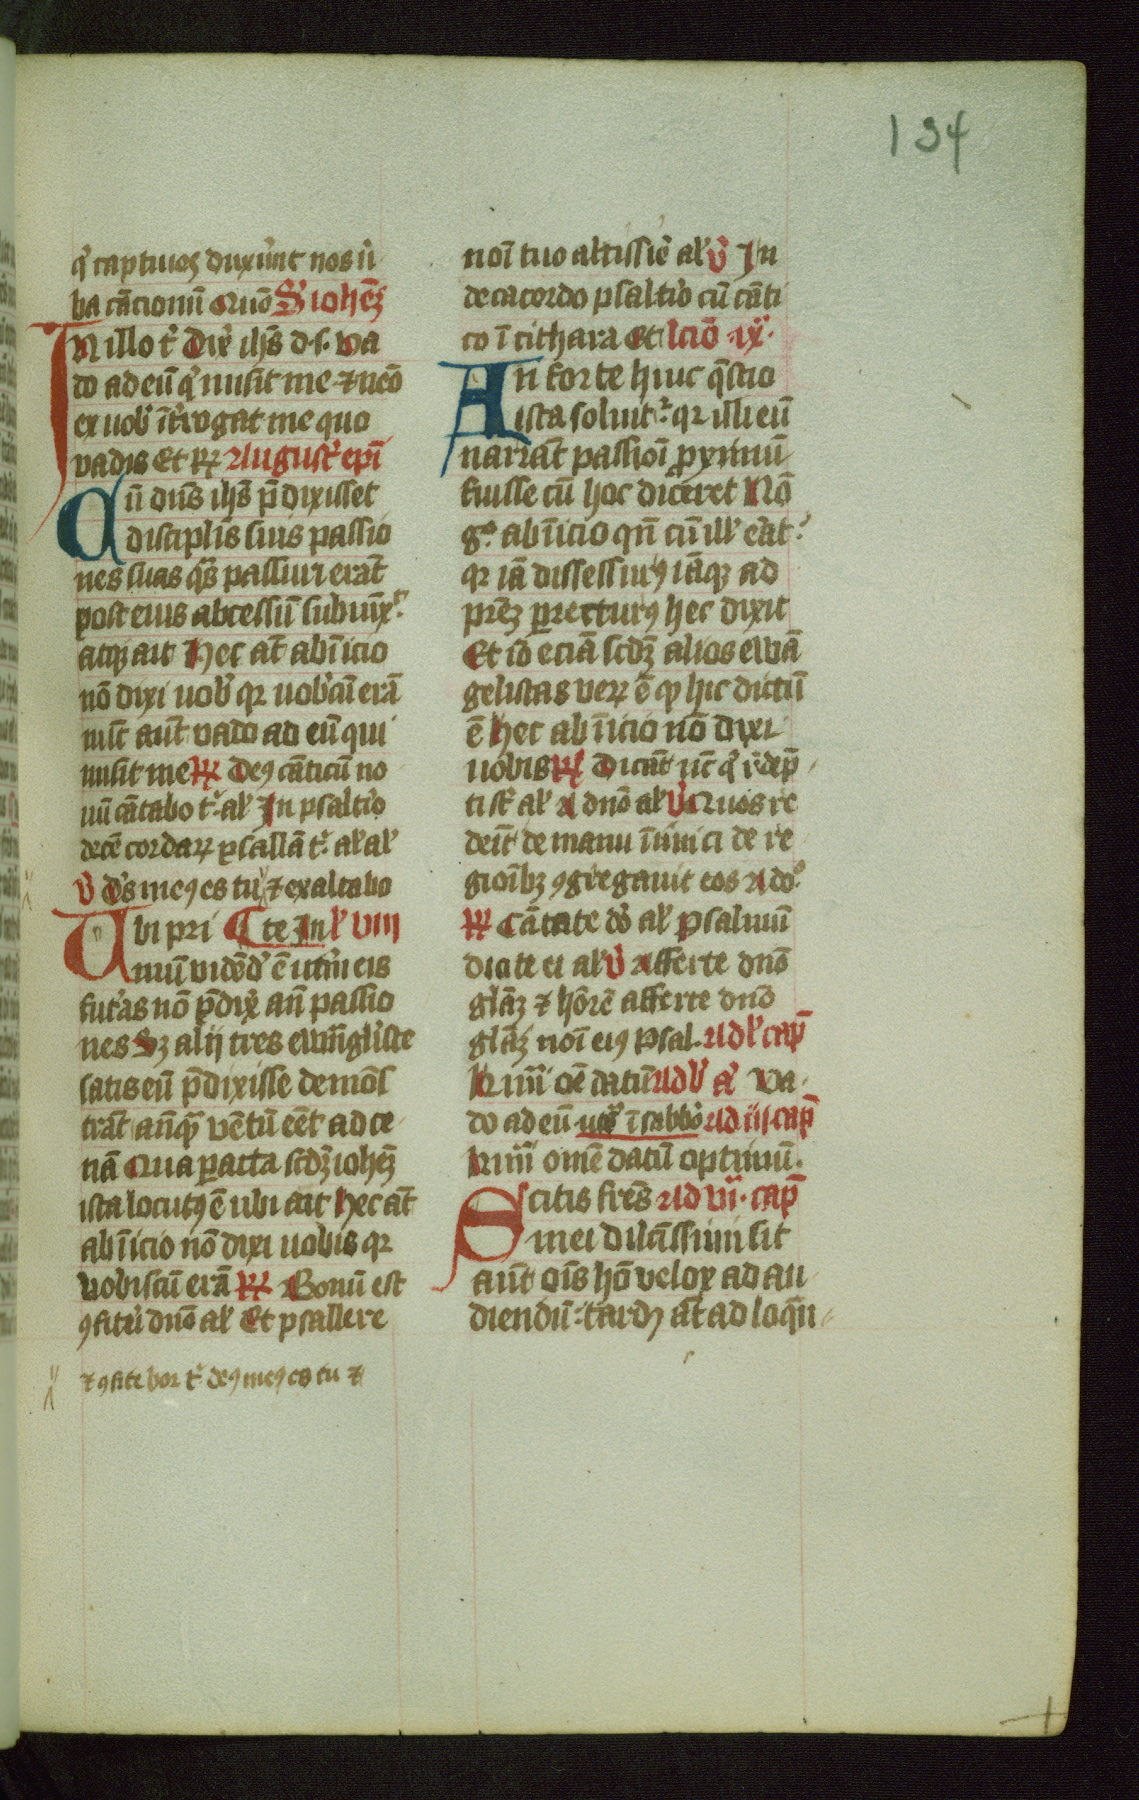 134
q̇ captiuoꝫ duxer̄t nos u̇
ba cācionū Quō S' ioheꝫ
In illo t̄ Dix̄ ih̄s d. s. va
do ad eū q' misit me ⁊ nēo
ex uob̄ īt'rogat me quo
vadis Et rꝝ Augustī ep̄i
Cū dn̄s ih̄s p̄dixisset
discipl̄is suis passio
nes suas q̄s passuri erāt
post eius abcessū subiūx̄.
atqꝫ ait Hec at̄ ab īnicio
nō dixi uob̄ qꝛ uob̄cū erā
nūc aut̄ vado ad eū qui
misit me ꝶ Deꝰ cāticū no
uū cātabo t̄. al̄ In psalt'io
decē cordarꝝ psallā t̄. al̄ al̄
v̇ d's meꝰ es tu ⁊ exaltabo
Ubi pri C te In l' viii
mū vidēd̄ ē utrū eis
futuras nō p̄dix̄ an̄ passio
nes Sꝫ alij tres ewāgl'iste
satis eū p̄dixisse demōs
trāt an̄qꝫ vētū eēt ad ce
nā Qua p̱acta scdꝫ ioheꝫ
ista locutꝰ ē ubi ait Hec at̄
ab īnicio nō dixi uobis qꝛ
vobiscū erā ꝶ Bonū est
ꝯfit'i dn̄o al̄ Et psallere
⁊ ꝯfitebor t̄. deꝰ meꝰ es tu ⁊
noī tuo altissīe al̄ v̇ In
decacordo psalt'io cū cāti
co ī cithara Et lc̄io .ix.
An forte hinc q̄stio
ista soluit.' qꝛ illi eū
narrāt passioī p̱ximū
fuisse cū hoc dic̄eret Nō
gͦ. ab īnicio qn̄ cū ill' erat.
qꝛ iā dissessurꝰ iāqꝫ ad
p̄rēꝫ p̱recturꝰ hec dixit
Et iō eciā scdꝫ alios ewā
gelistas verꝝ ē qꝫ hic dictū
ē Hec ab īnicio nō dixi
uobis ꝶ Dicāt nc̄ q' rēdēp̄
ti st̄ al̄ A dn̄o al̄ v̇ Quos re
deīt de manu inimici de re
gioībꝫ ꝯgregauit eos A do.
ꝶ Cātate dō al̄ psalmū
dicite ei al̄ v̇ Afferte dn̄o
glāꝫ ⁊ hōrē afferte dn̄o
glāꝫ noī eiꝰ psal. Ad l' cap̄
kr̄mi oē datū Ad b̄ a' Va
do ad eū ut' ī sabbō Ad iij. cap̄
kr̄mi omē datū optimū.
Scitis fr̄es Ad vi. cap̄
mei dilc̄issimi sit
aut̄ oīs hō velox ad au
diendū.' tardꝰ at̄ ad loqn̄